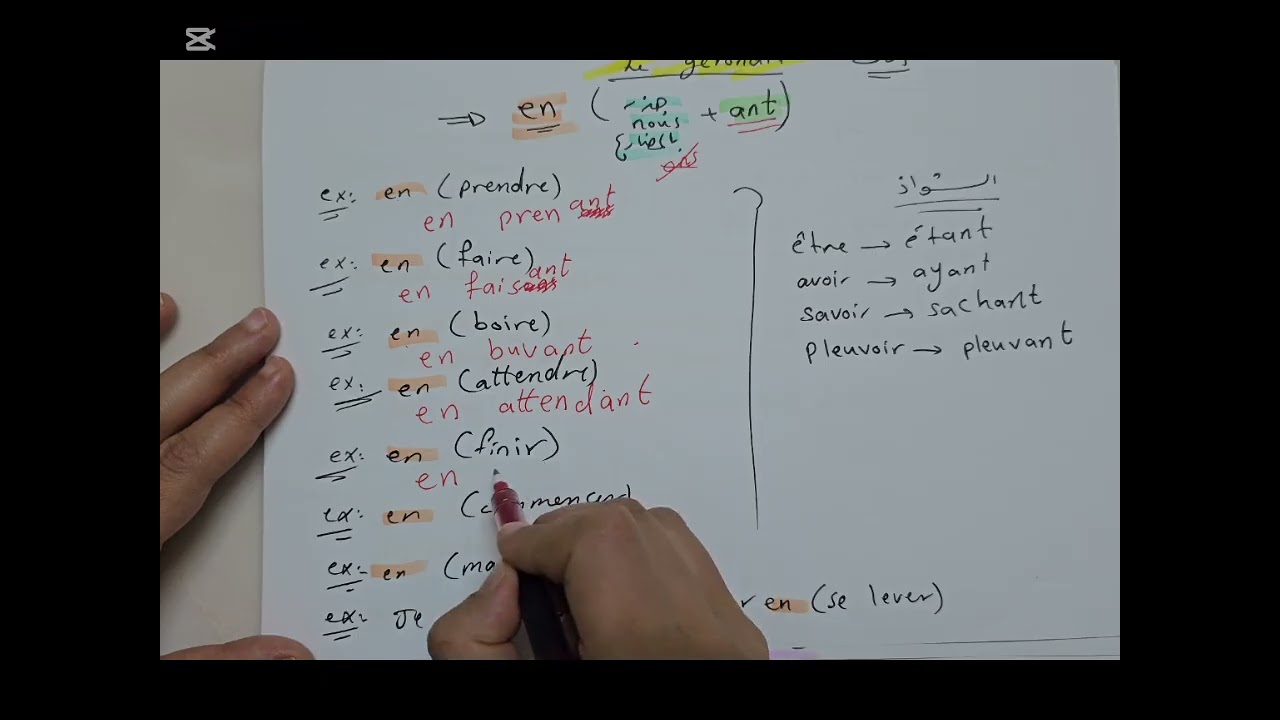 Le gérondif
⇒ en (nous + ant)
ons
ex: en (prendre)
en prenant
ex: en (faire)
en faisant
ex: en (boire)
en buvant
ex: en (attendre)
en attendant
ex: en (finir)
en
ex: en (commencer)
ex: en (ma
ex: Je
r en (se lever)
الشواذ
être → étant
avoir → ayant
savoir → sachant
pleuvoir → pleuvant